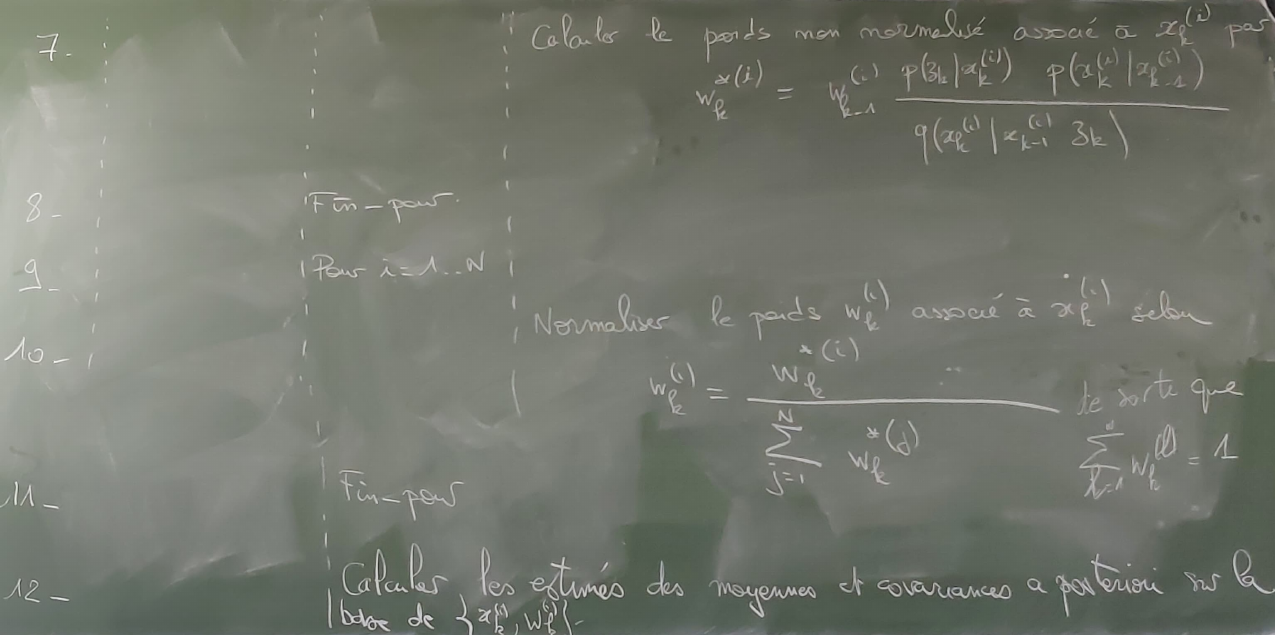 7. Calculer le poids non normalisé associé à x_k^(i) par
w_k^*(i) = w_{k-1}^(i) p(z_k|x_k^(i)) p(x_k^(i)|x_{k-1}^(i)) / q(x_k^(i)|x_{k-1}^(i) z_k)
8- Fin-pour.
9- Pour i=1..N
10- Normaliser le poids w_k^(i) associé à x_k^(i) selon
w_k^(i) = w_k^*(i) / ∑_{j=1}^N w_k^*(j) de sorte que
∑ w_k = 1
11- Fin-pour
12- Calculer les estimés des moyennes et covariances a posteriori sur la
base de {x_k^(i), w_k^(i)}-